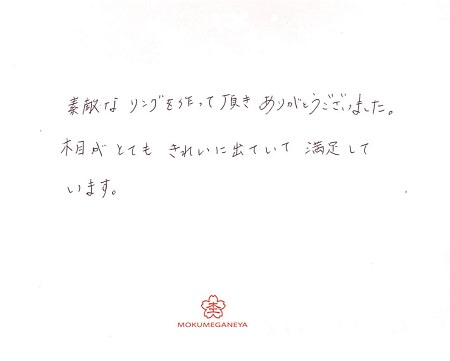 素敵な リングを作って頂き ありがとうございました。
木目が とても きれいに出ていて 満足して
います。
MOKUMEGANEYA